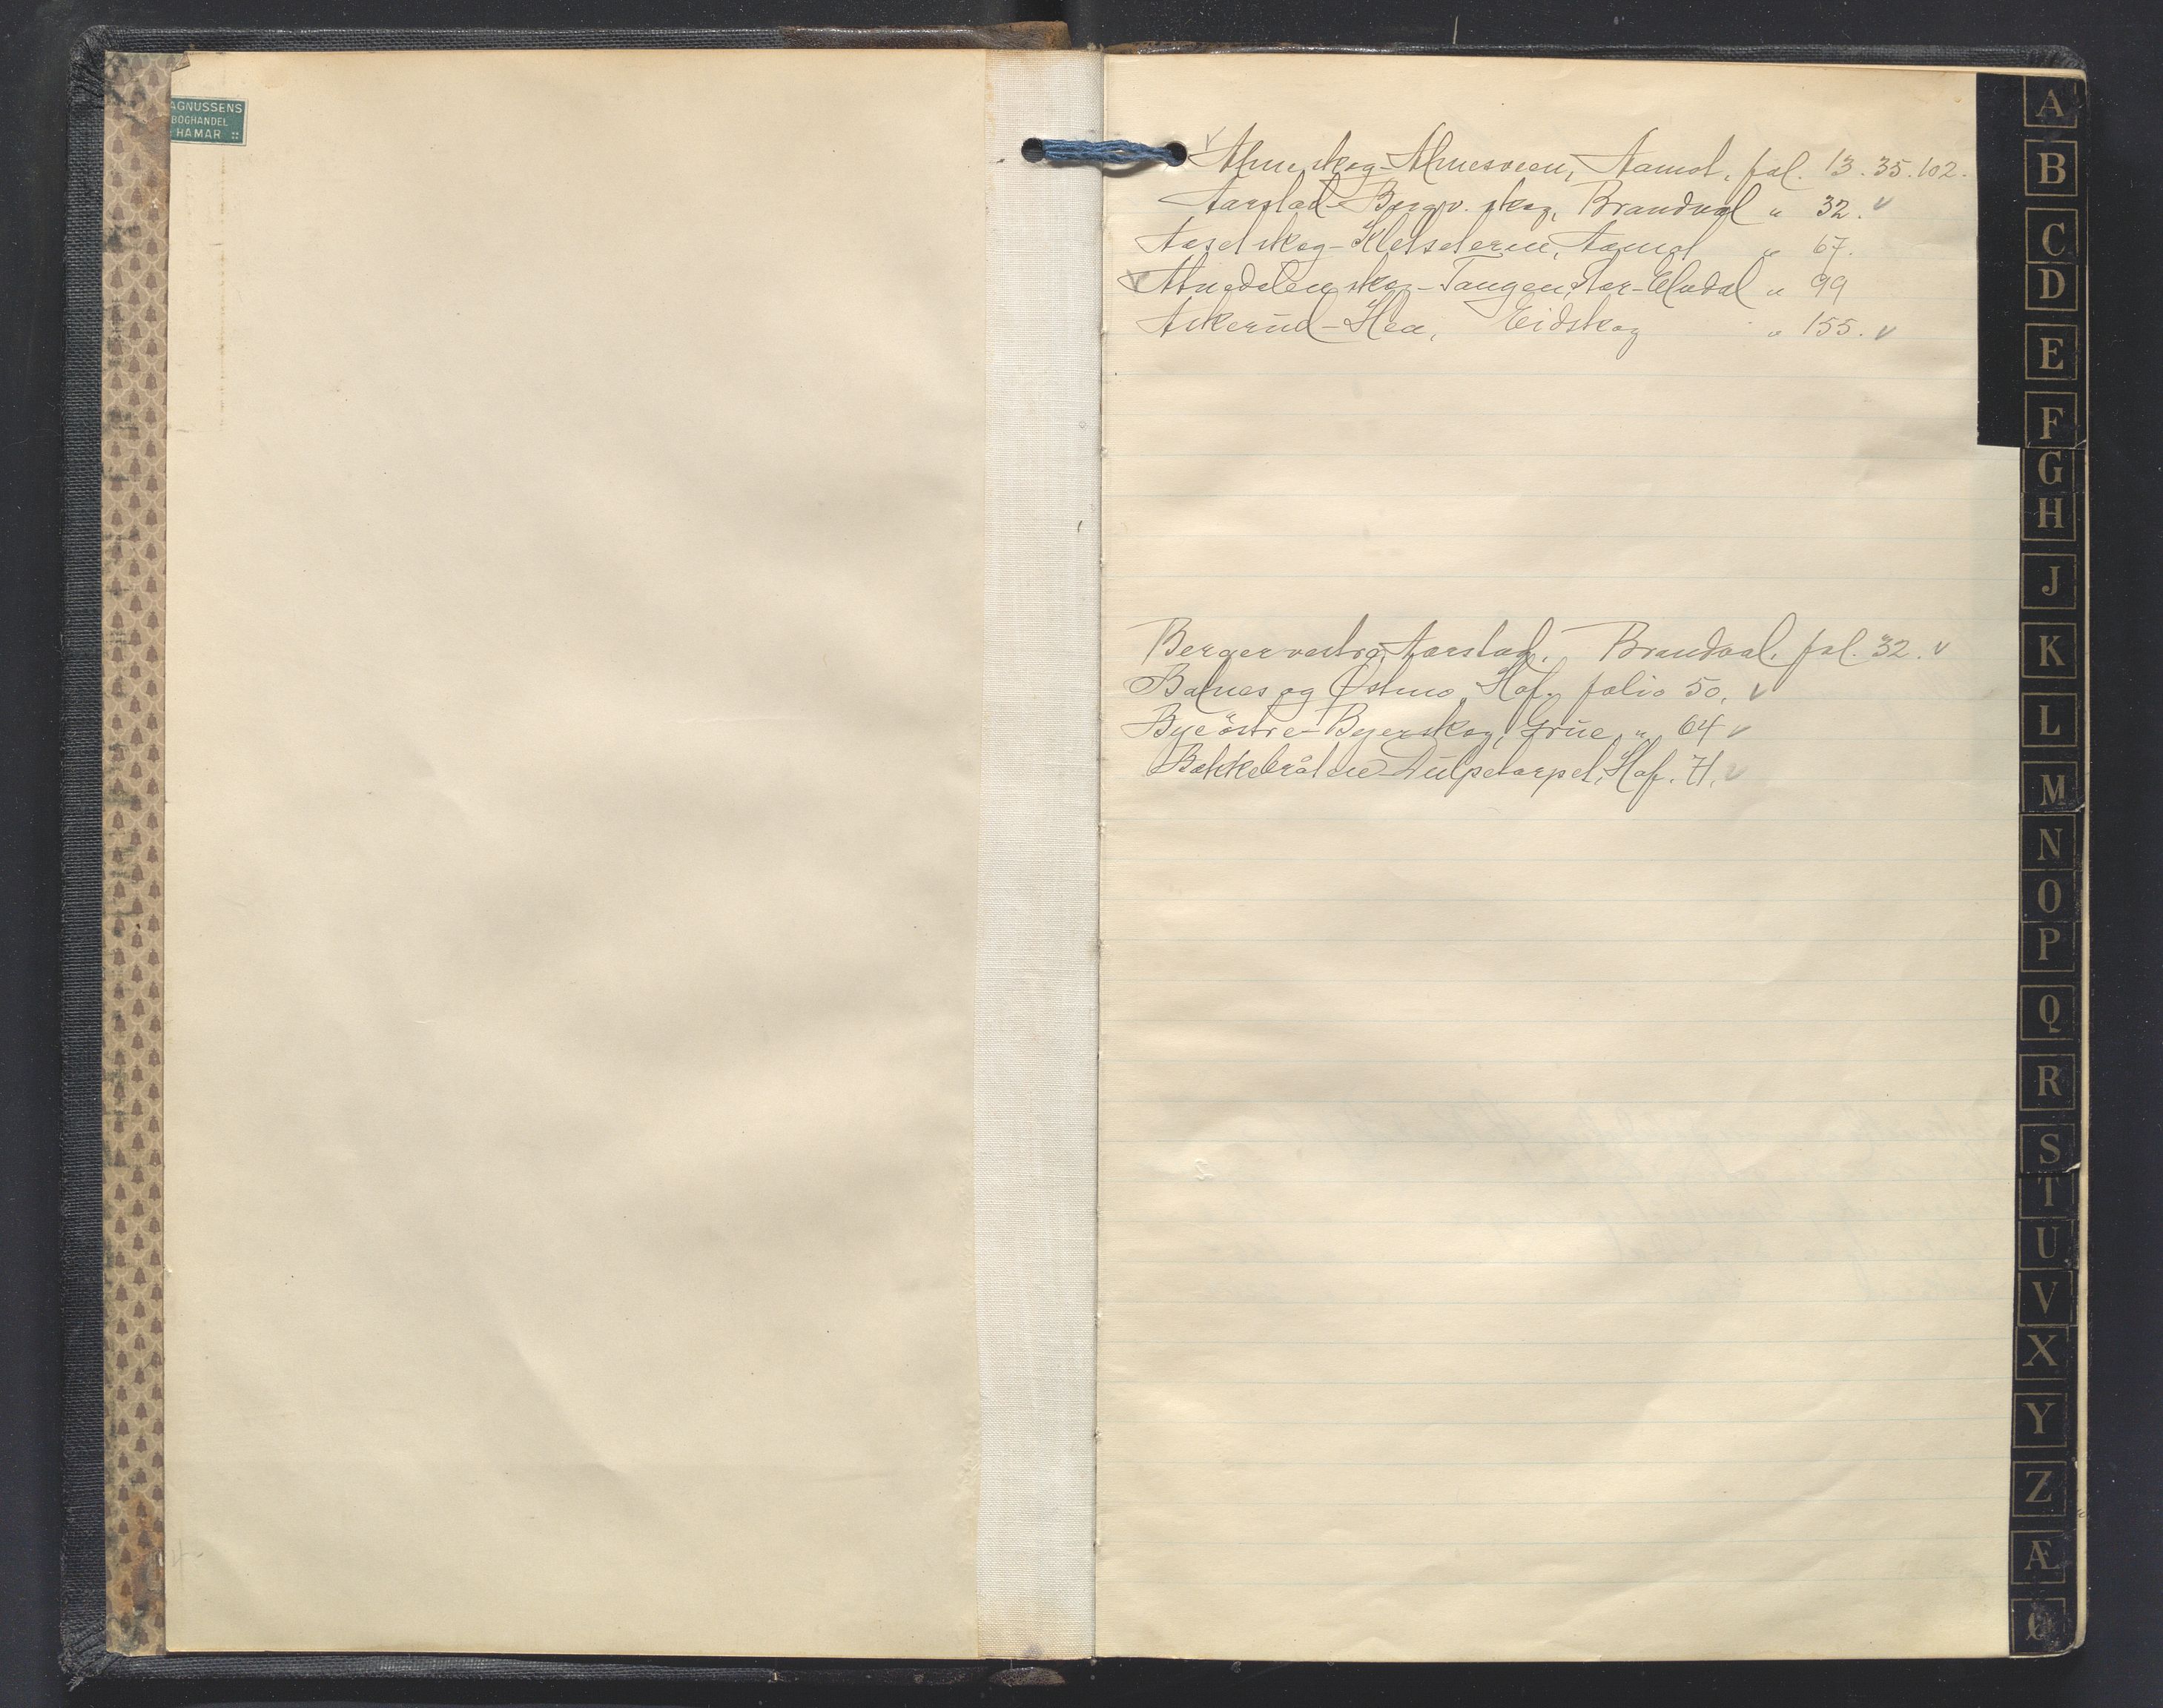 AGNUSSENS
BOGHANDEL
HAMAR ::
Alme skog - Almesveen, Aamot, fol. 13. 35. 102.
Aarstad - Bergv. skog, Brandval " 32. v
Aasel skog - Kletseteren, Aamot " 67.
Atnedalen skog - Tangen, Stor-Elvdal " 99
Askerud - Slea, Eidskog " 155. v
Berger vestre, Aarstad, Brandval, fol. 32. v
Balnes og Østmo, Hof, folio 50. v
Bye östre - Byerskog, Grue, " 64 v
Bekkebråten - Dulpetorpet, Hof. 71. v
A
B
C
D
E
F
G
H
J
K
L
M
N
O
P
Q
R
S
T
U
V
X
Y
Z
Æ
Ø